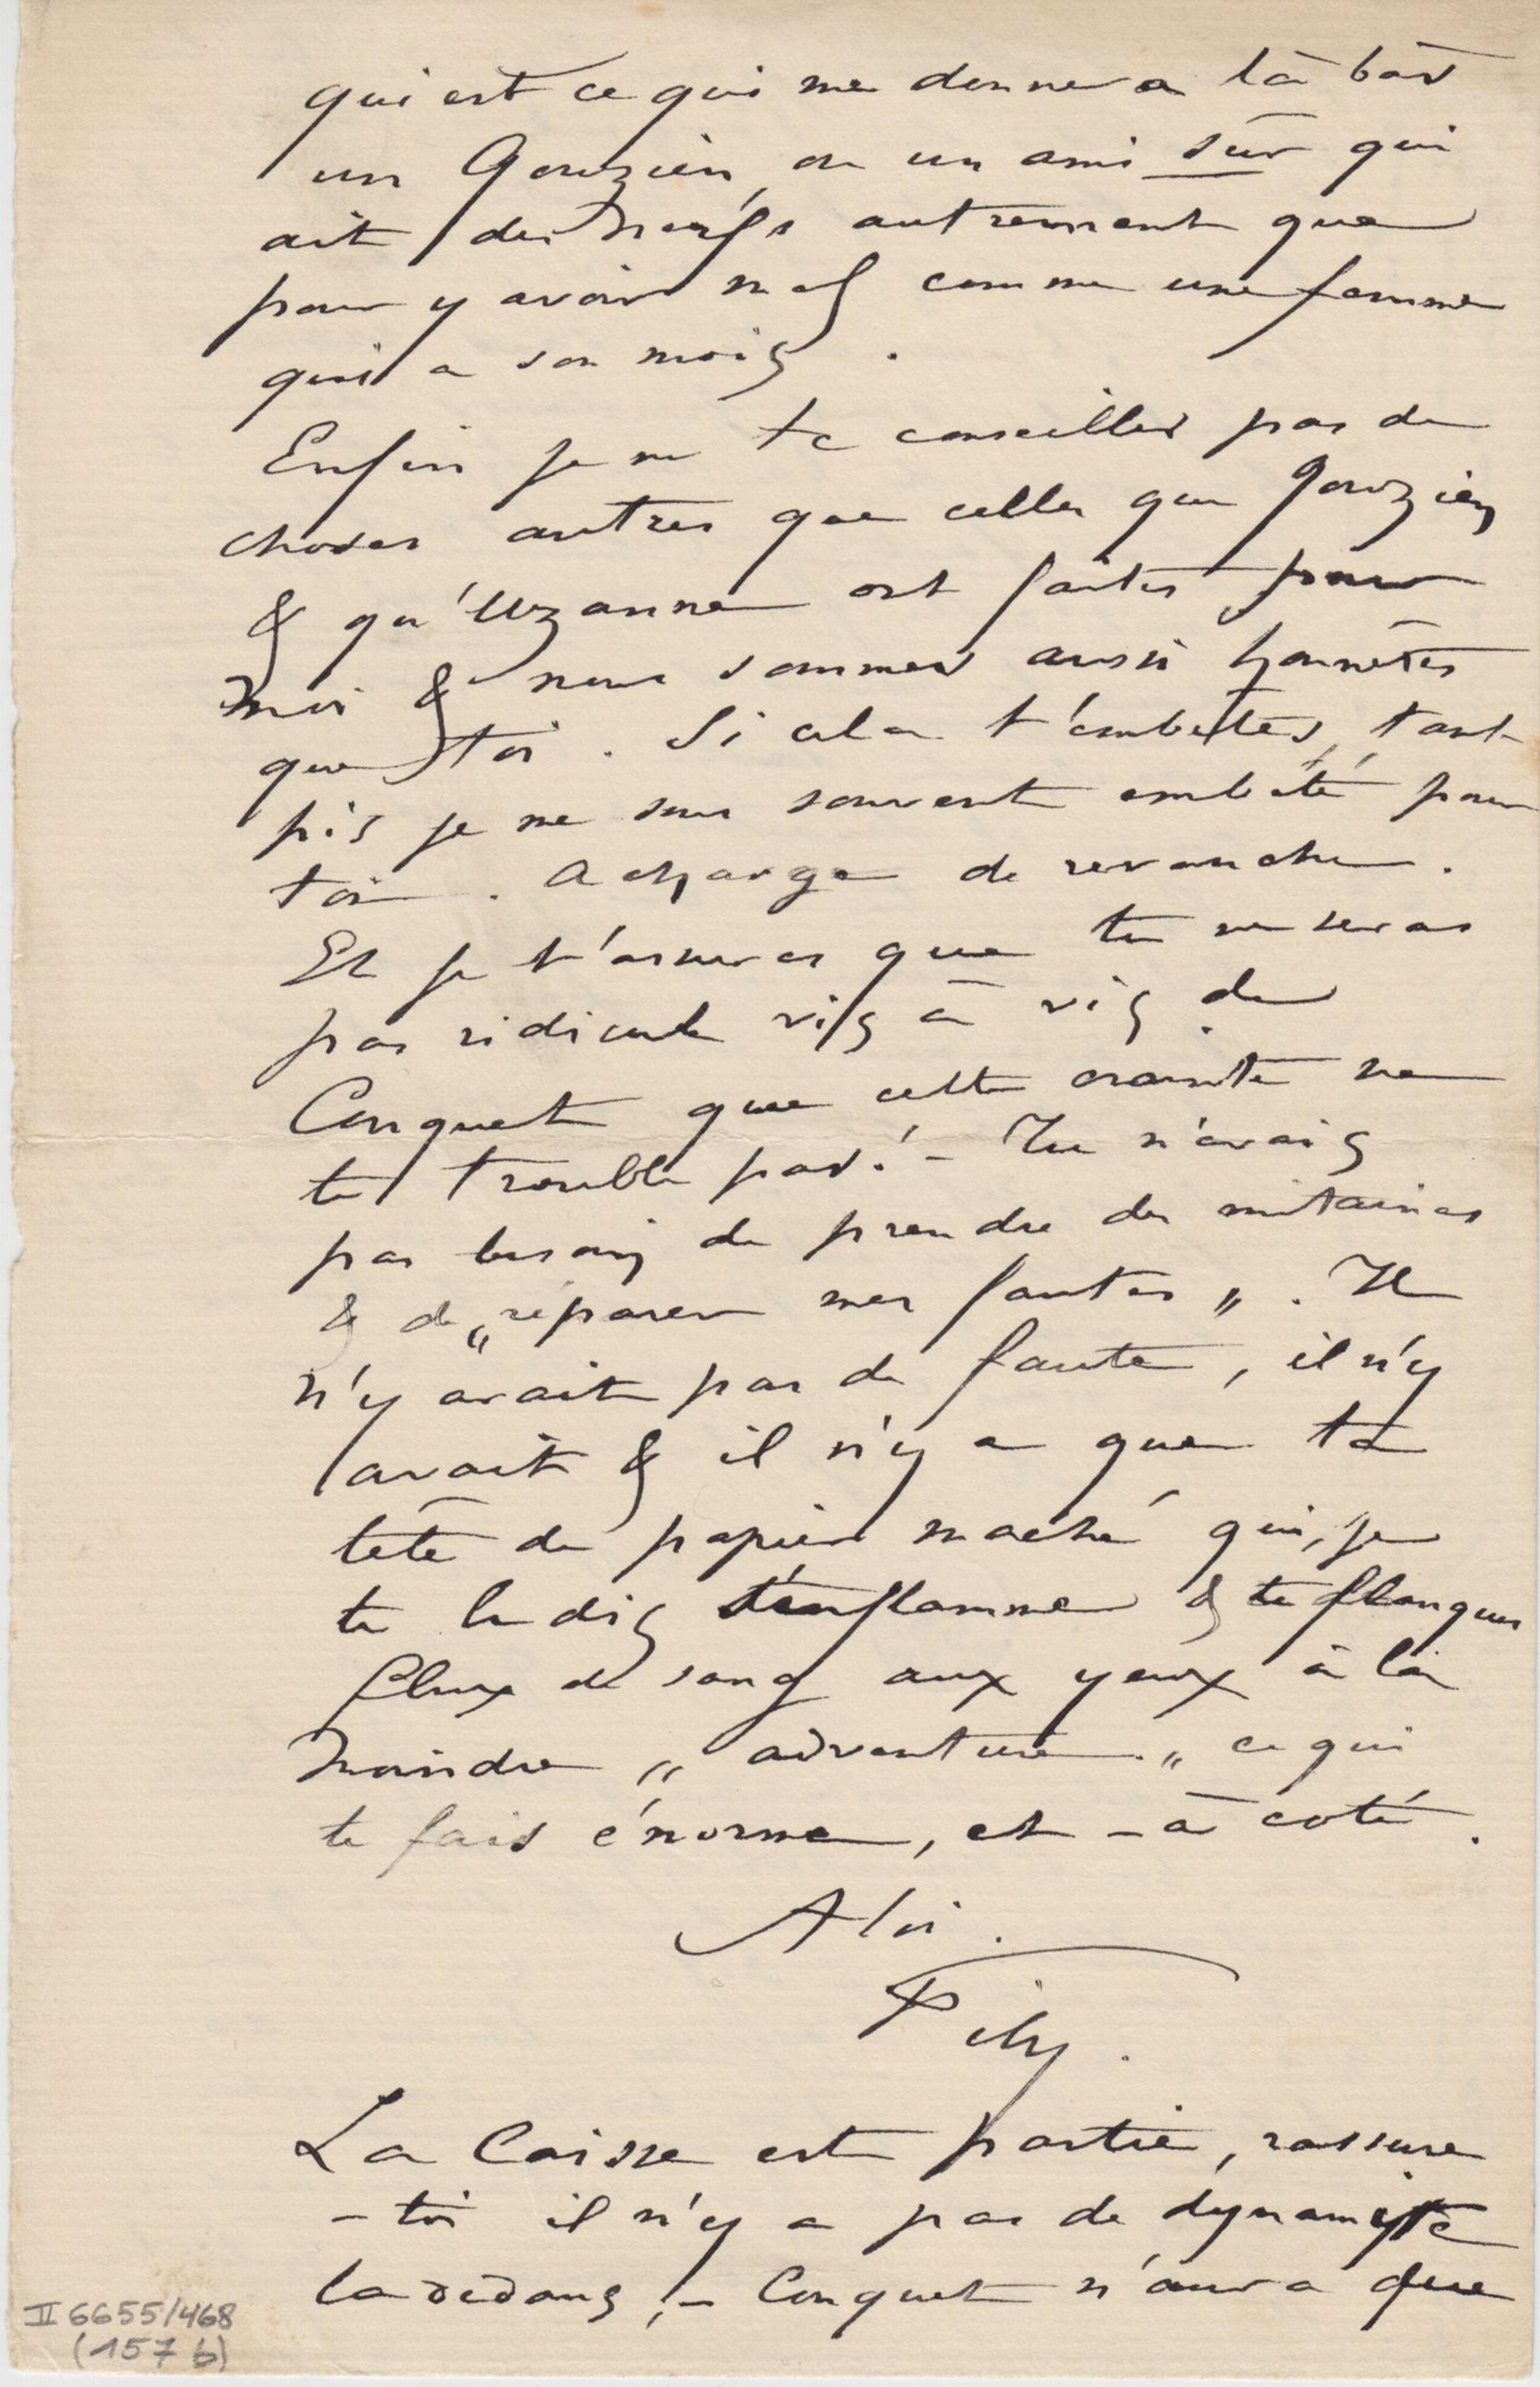 qui est ce qui me donnera là bas
un Gouzien, ou un ami sûr qui
ait des nerfs autrement que
pour y avoir mal comme une femme
qui a son mois.
Enfin je ne te conseilles pas de
choses autres que celles que Gouzien
& qu'Uzanne ont faites pour
moi & nous sommes aussi honnêtes
que toi. Si cela t'embêtes, tant
pis je me suis souvent embêté pour
toi. A charge de revanche.
Et je t'assures que tu ne seras
pas ridicule vis à vis de
Conquet que cette crainte ne
te trouble pas! – Tu n'avais
pas besoin de prendre des mitaines
& de „réparer mes fautes". Il
n'y avait pas de faute, il n'y
avait & il n'y a que ta
tête de papier maché qui, je
te le dis s'enflamme & te flanques
flux de sang aux yeux à la
moindre „adventure" ce qui
te fais énorme, et – à coté.
A toi.
Fély.
La Caisse est partie, rassure
– toi il n'y a pas de dynamite
la dedans, – Conquet n'aura que
II 6655/468
(157 b)